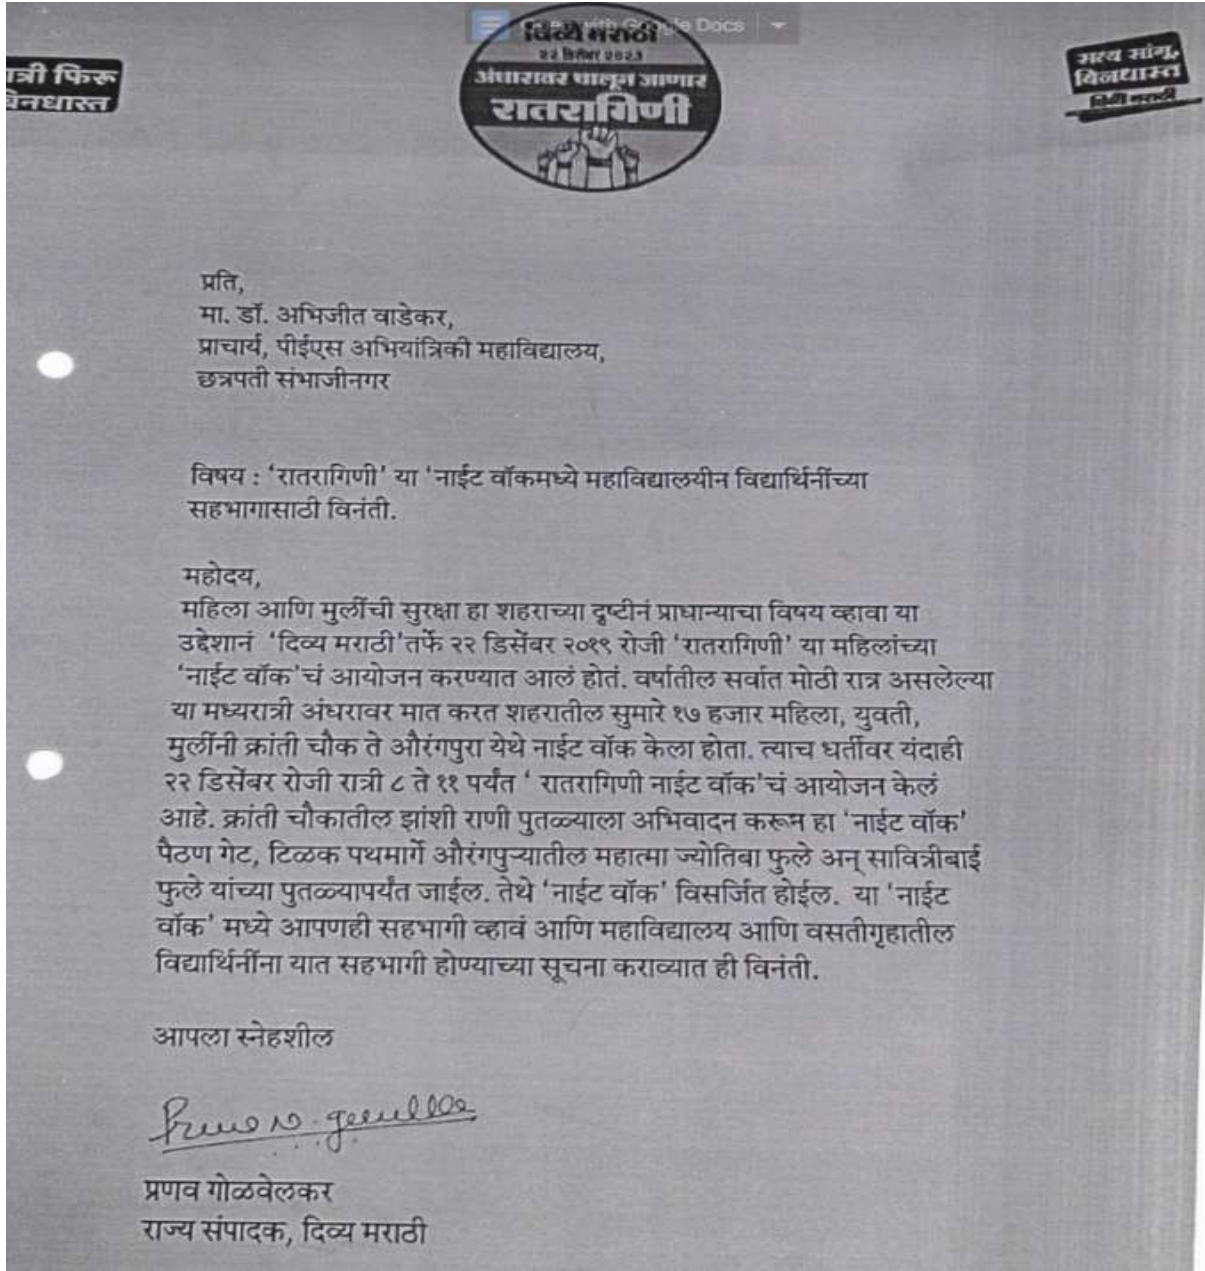 त्री फिरू
बिनधास्त
दिव्य मराठी
२२ डिसेंबर २०२३
अंधारावर चालून जाणार
रातरागिणी
सत्य सांगू,
बिनधास्त
दिव्य मराठी
with Google Docs
प्रति,
मा. डॉ. अभिजीत वाडेकर,
प्राचार्य, पीईएस अभियांत्रिकी महाविद्यालय,
छत्रपती संभाजीनगर
विषय : ‘रातरागिणी’ या ‘नाईट वॉकमध्ये महाविद्यालयीन विद्यार्थिनींच्या
सहभागासाठी विनंती.
महोदय,
महिला आणि मुलींची सुरक्षा हा शहराच्या दृष्टीनं प्राधान्याचा विषय व्हावा या
उद्देशानं ‘दिव्य मराठी’तर्फे २२ डिसेंबर २०१९ रोजी ‘रातरागिणी’ या महिलांच्या
‘नाईट वॉक’चं आयोजन करण्यात आलं होतं. वर्षातील सर्वात मोठी रात्र असलेल्या
या मध्यरात्री अंधरावर मात करत शहरातील सुमारे १७ हजार महिला, युवती,
मुलींनी क्रांती चौक ते औरंगपुरा येथे नाईट वॉक केला होता. त्याच धर्तीवर यंदाही
२२ डिसेंबर रोजी रात्री ८ ते ११ पर्यंत ‘ रातरागिणी नाईट वॉक’चं आयोजन केलं
आहे. क्रांती चौकातील झांशी राणी पुतळ्याला अभिवादन करून हा ‘नाईट वॉक’
पैठण गेट, टिळक पथमार्गे औरंगपुऱ्यातील महात्मा ज्योतिबा फुले अन् सावित्रीबाई
फुले यांच्या पुतळ्यापर्यंत जाईल. तेथे ‘नाईट वॉक’ विसर्जित होईल. या ‘नाईट
वॉक’ मध्ये आपणही सहभागी व्हावं आणि महाविद्यालय आणि वसतीगृहातील
विद्यार्थिनींना यात सहभागी होण्याच्या सूचना कराव्यात ही विनंती.
आपला स्नेहशील
प्रणव गोळवेलकर
राज्य संपादक, दिव्य मराठी